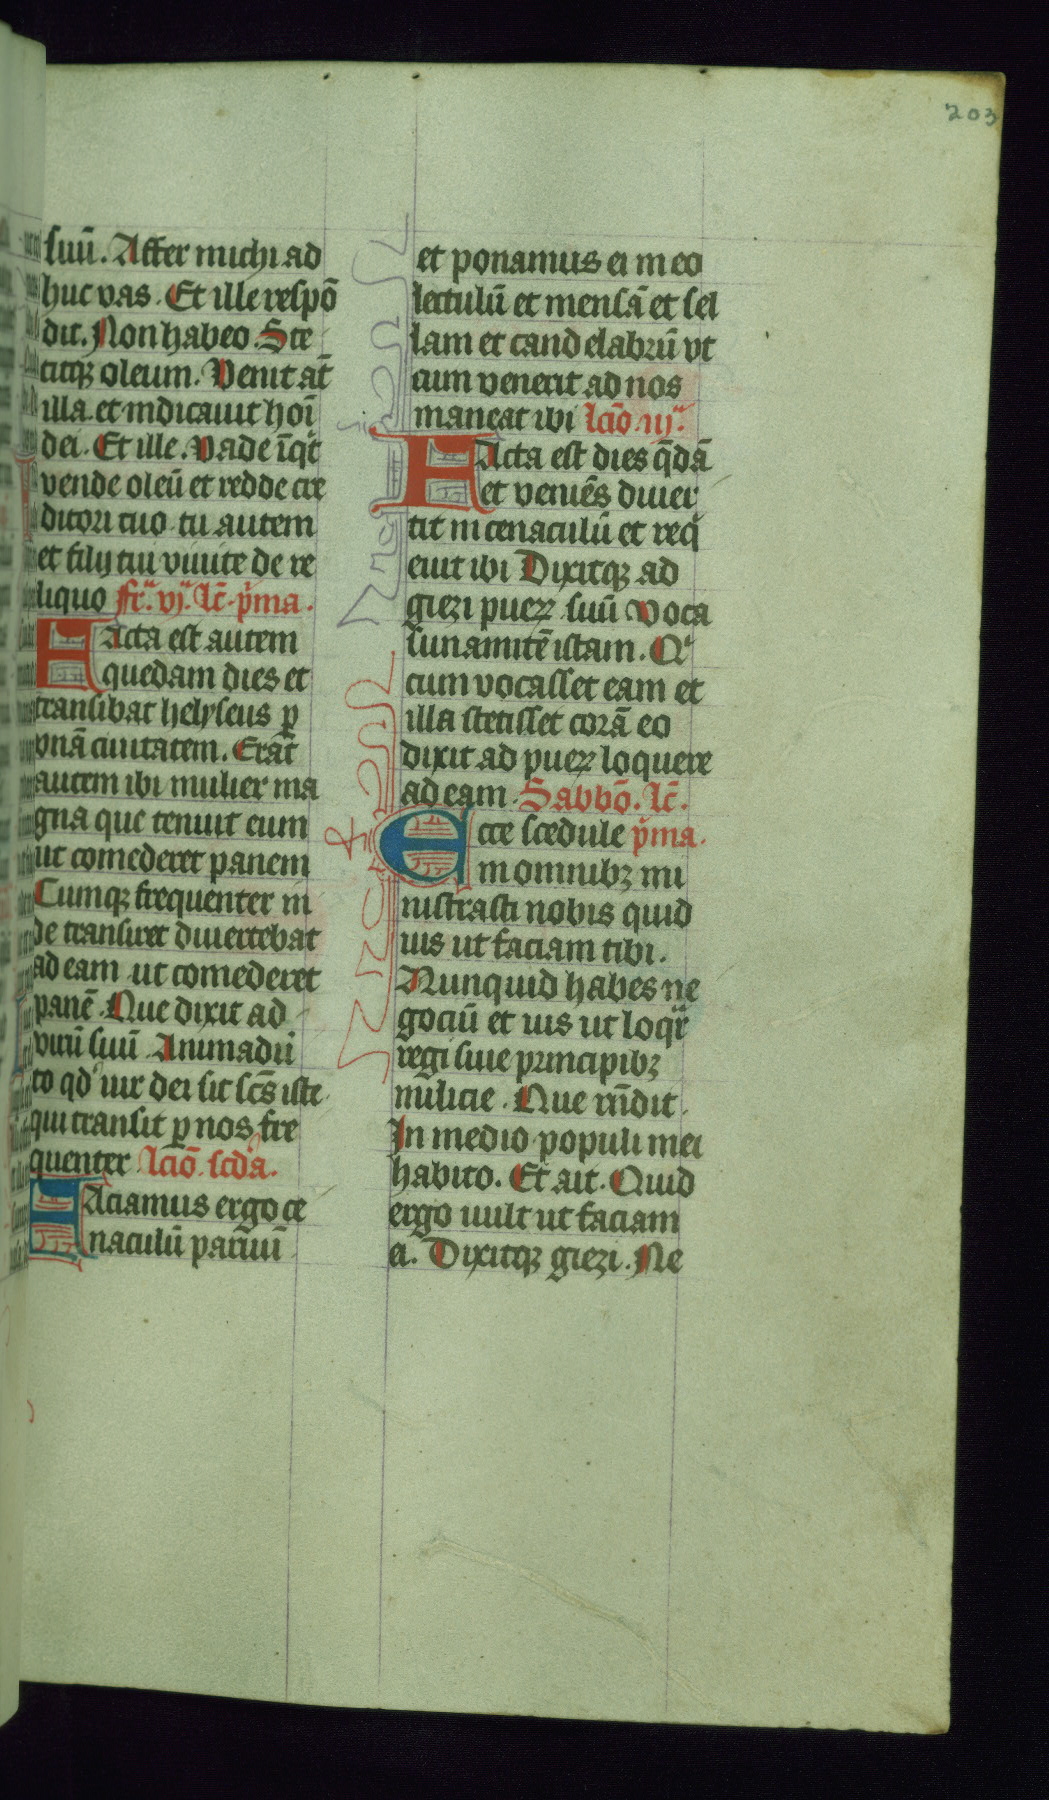 203
suū. Affer michi ad
huc vas. Et ille respō
dit. Non habeo. Ste
titq; oleum. Venit at̄
illa et indicauit hoī
dei. Et ille. Vade īqt
vende oleū et redde cre
ditori tuo. tu autem
et filij tui viuite de re
liquo fr̄. vj. lc̄. p̄ma.
Facta est autem
quedam dies et
transibat helyseus p
vnā ciuitatem. Erat
autem ibi mulier ma
gna que tenuit eum
ut comederet panem
Cumq; frequenter in
de transiret diuertebat
ad eam ut comederet
panē. Que dixit ad
virū suū. Animadū
to qd uir dei sit scs iste
qui transit p nos fre
quenter lcīo scda.
Faciamus ergo ce
naculū paruū
et ponamus ei in eo
lectulū et mensā et sel
lam et candelabrū vt
cum venerit ad nos
maneat ibi lcīo iij.
Facta est dies qdā
et veniēs diuer
tit in cenaculū et req
eiuit ibi Dixitq; ad
giezi pueꝝ suū voca
sunamitē istam. Qi
cum vocasset eam et
illa stetisset corā eo
dixit ad pueꝝ loquere
ad eam. Sabbō. lc̄.
Ecce scedule p̄ma.
in omnibꝫ mi
nistrasti nobis quid
uis ut faciam tibi.
Nunquid habes ne
gociū et uis ut loqr
regi siue principibꝫ
milicie. Que rn̄dit.
In medio populi mei
habito. Et ait. Quid
ergo uult ut faciam
ei. Dixitq; giezi. Ne